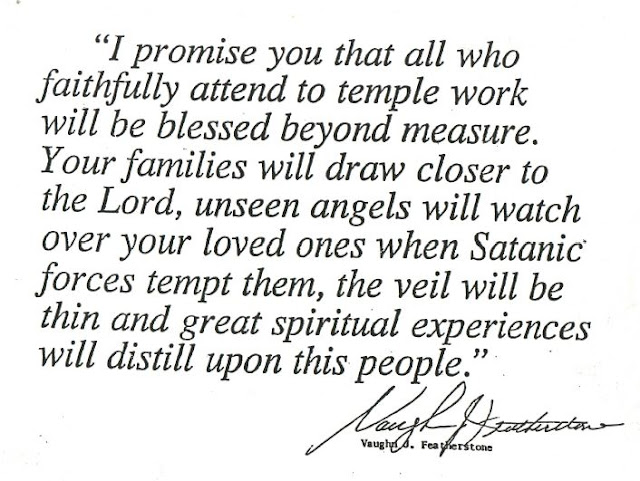 “I promise you that all who
faithfully attend to temple work
will be blessed beyond measure.
Your families will draw closer to
the Lord, unseen angels will watch
over your loved ones when Satanic
forces tempt them, the veil will be
thin and great spiritual experiences
will distill upon this people.”
Vaughn J. Featherstone
Vaughn J. Featherstone